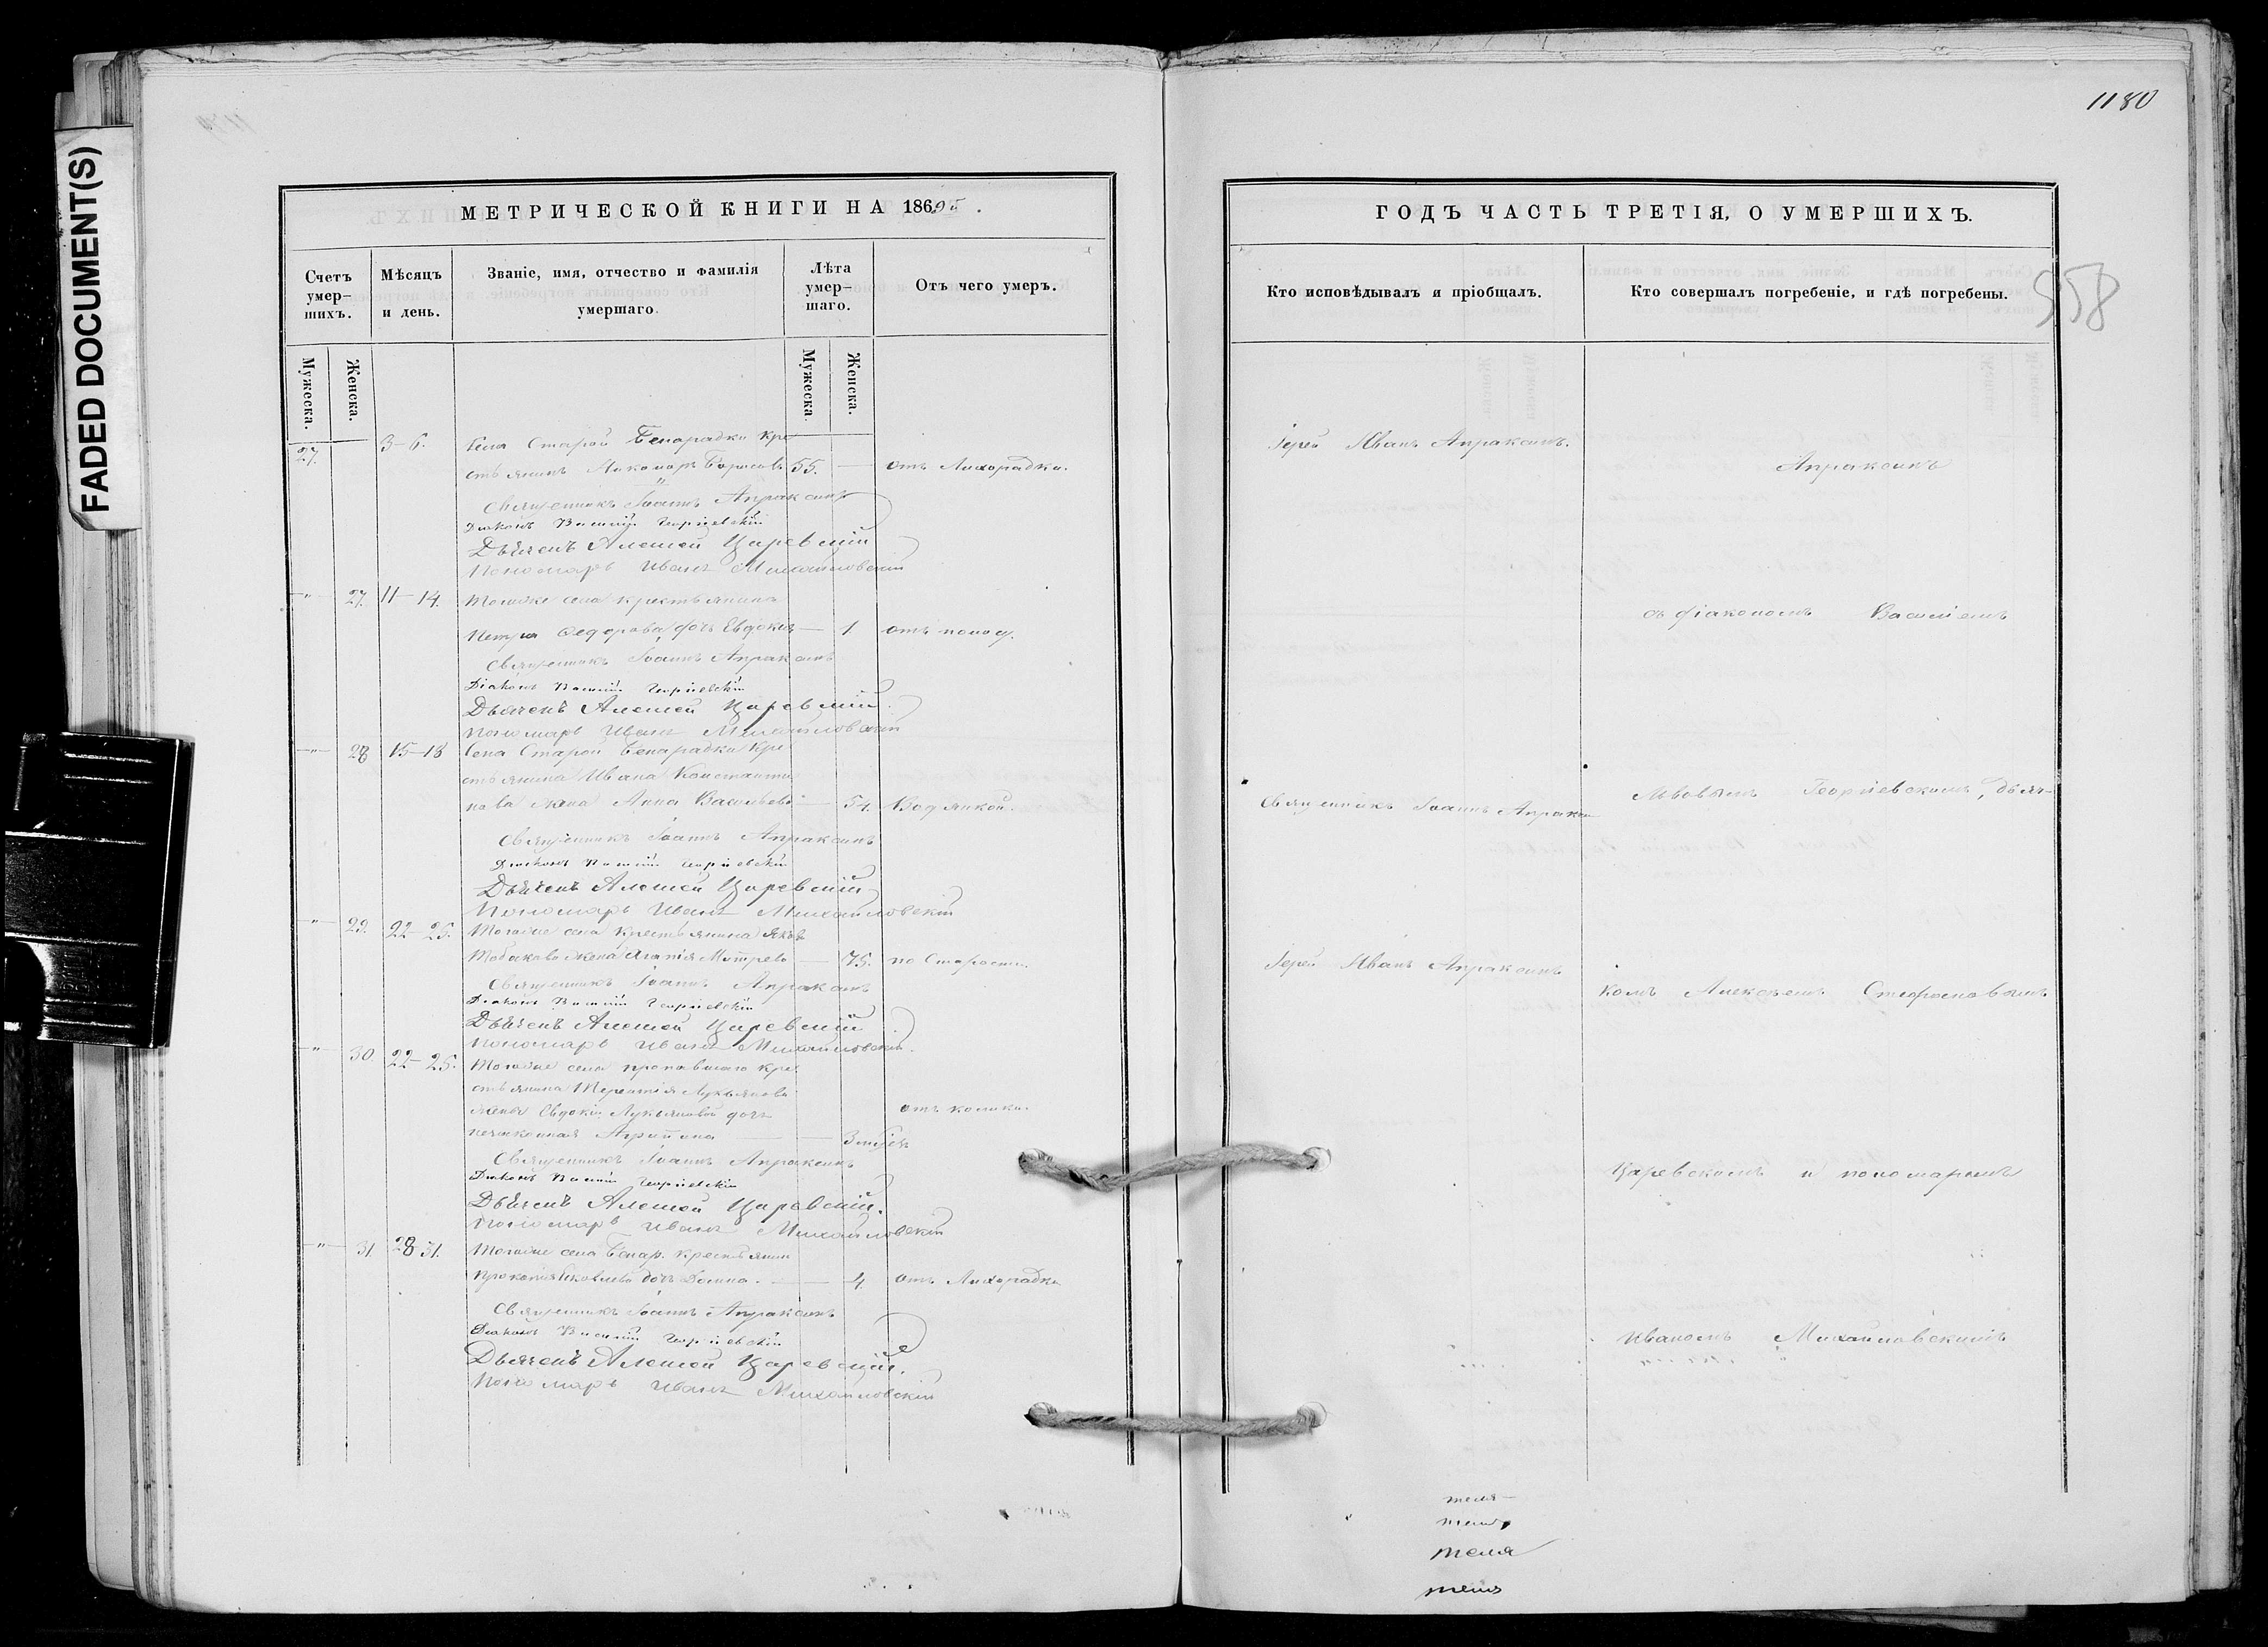 FADED DOCUMENT(S)
1180
558
МЕТРИЧЕСКОЙ КНИГИ НА 1865.
Счетъ умер-шихъ.
Мѣсяцъ и день.
Званіе, имя, отчество и фамилія умершаго.
Лѣта умер-шаго.
Отъ чего умеръ.
Мужеска.
Женска.
Мужеска
Женска.
27. 3–6. Села Старой Бенарадки кре
стьянинъ Никаноръ Борисовъ 55. — отъ Лихорадки.
Священникъ Іоаннъ Апраксинъ
Діаконъ Василій Георгіевскій
Дьячекъ Алексей Царевскій
Пономарь Иванъ Михайловскій
" 27. 11–14. Тогоже села крестьянина
Петра Федорова дочь Евдокія — 1 отъ поносу.
Священникъ Іоаннъ Апраксинъ
Діаконъ Василій Георгіевскій
Дьячекъ Алексей Царевскій.
Пономарь Иванъ Михайловскій
" 28 15–18 Села Старой Бенарадки кре
стьянина Ивана Константи
нова жена Анна Васильева — 54. Водянкой.
Священникъ Іоаннъ Апраксинъ
Діаконъ Василій Георгіевскій
Дьячекъ Алексей Царевскій
Пономарь Иванъ Михайловскій
" 29. 22–25. Тогоже села крестьянина Якова
жена — 75. по Старости.
Священникъ Іоаннъ Апраксинъ
Діаконъ Василій Георгіевскій
Дьячекъ Алексей Царевскій
Пономарь Иванъ Михайловскій.
" 30 22–25. Тогоже села кре
стьянина Терентія Лукьянова
жены Евдокіи Лукьяновой дочь отъ колики.
незаконная Агрипина — — 3
Священникъ Іоаннъ Апраксинъ
Діаконъ Василій Георгіевскій
Дьячекъ Алексей Царевскій.
Пономарь Иванъ Михайловскій
" 31. 28–31. Тогоже села Бенар. крестьянин
Прокопія Яковлева дочь Домна. — — 4. отъ Лихорадки
Священникъ Іоаннъ Апраксинъ
Діаконъ Василій Георгіевскій
Дьячекъ Алексей Царевскій.
Пономарь Иванъ Михайловскій
ГОДЪ ЧАСТЬ ТРЕТІЯ, О УМЕРШИХЪ.
Кто исповѣдывалъ и пріобщалъ.
Кто совершалъ погребеніе, и гдѣ погребены.
Іерей Иванъ Апраксинъ.
Апраксинъ
съ діакономъ Василіемъ
Львовымъ Георгіевскимъ, дьяч-
Священникъ Іоаннъ Апраксин
Іерей Иванъ Апраксинъ
комъ Алексѣемъ Стефановымъ
Царевскимъ и пономаремъ
Иваномъ Михайловскимъ